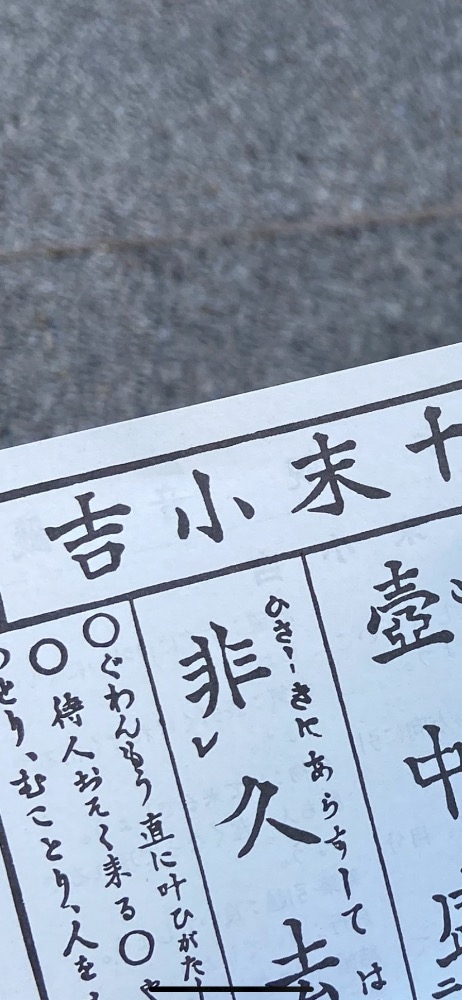 十末小吉
壺中
ひさしきにあらずしては
非レ久去
〇ぐわんもう直に叶ひがた
〇待人おそく来る〇や
とり、むことり、人を